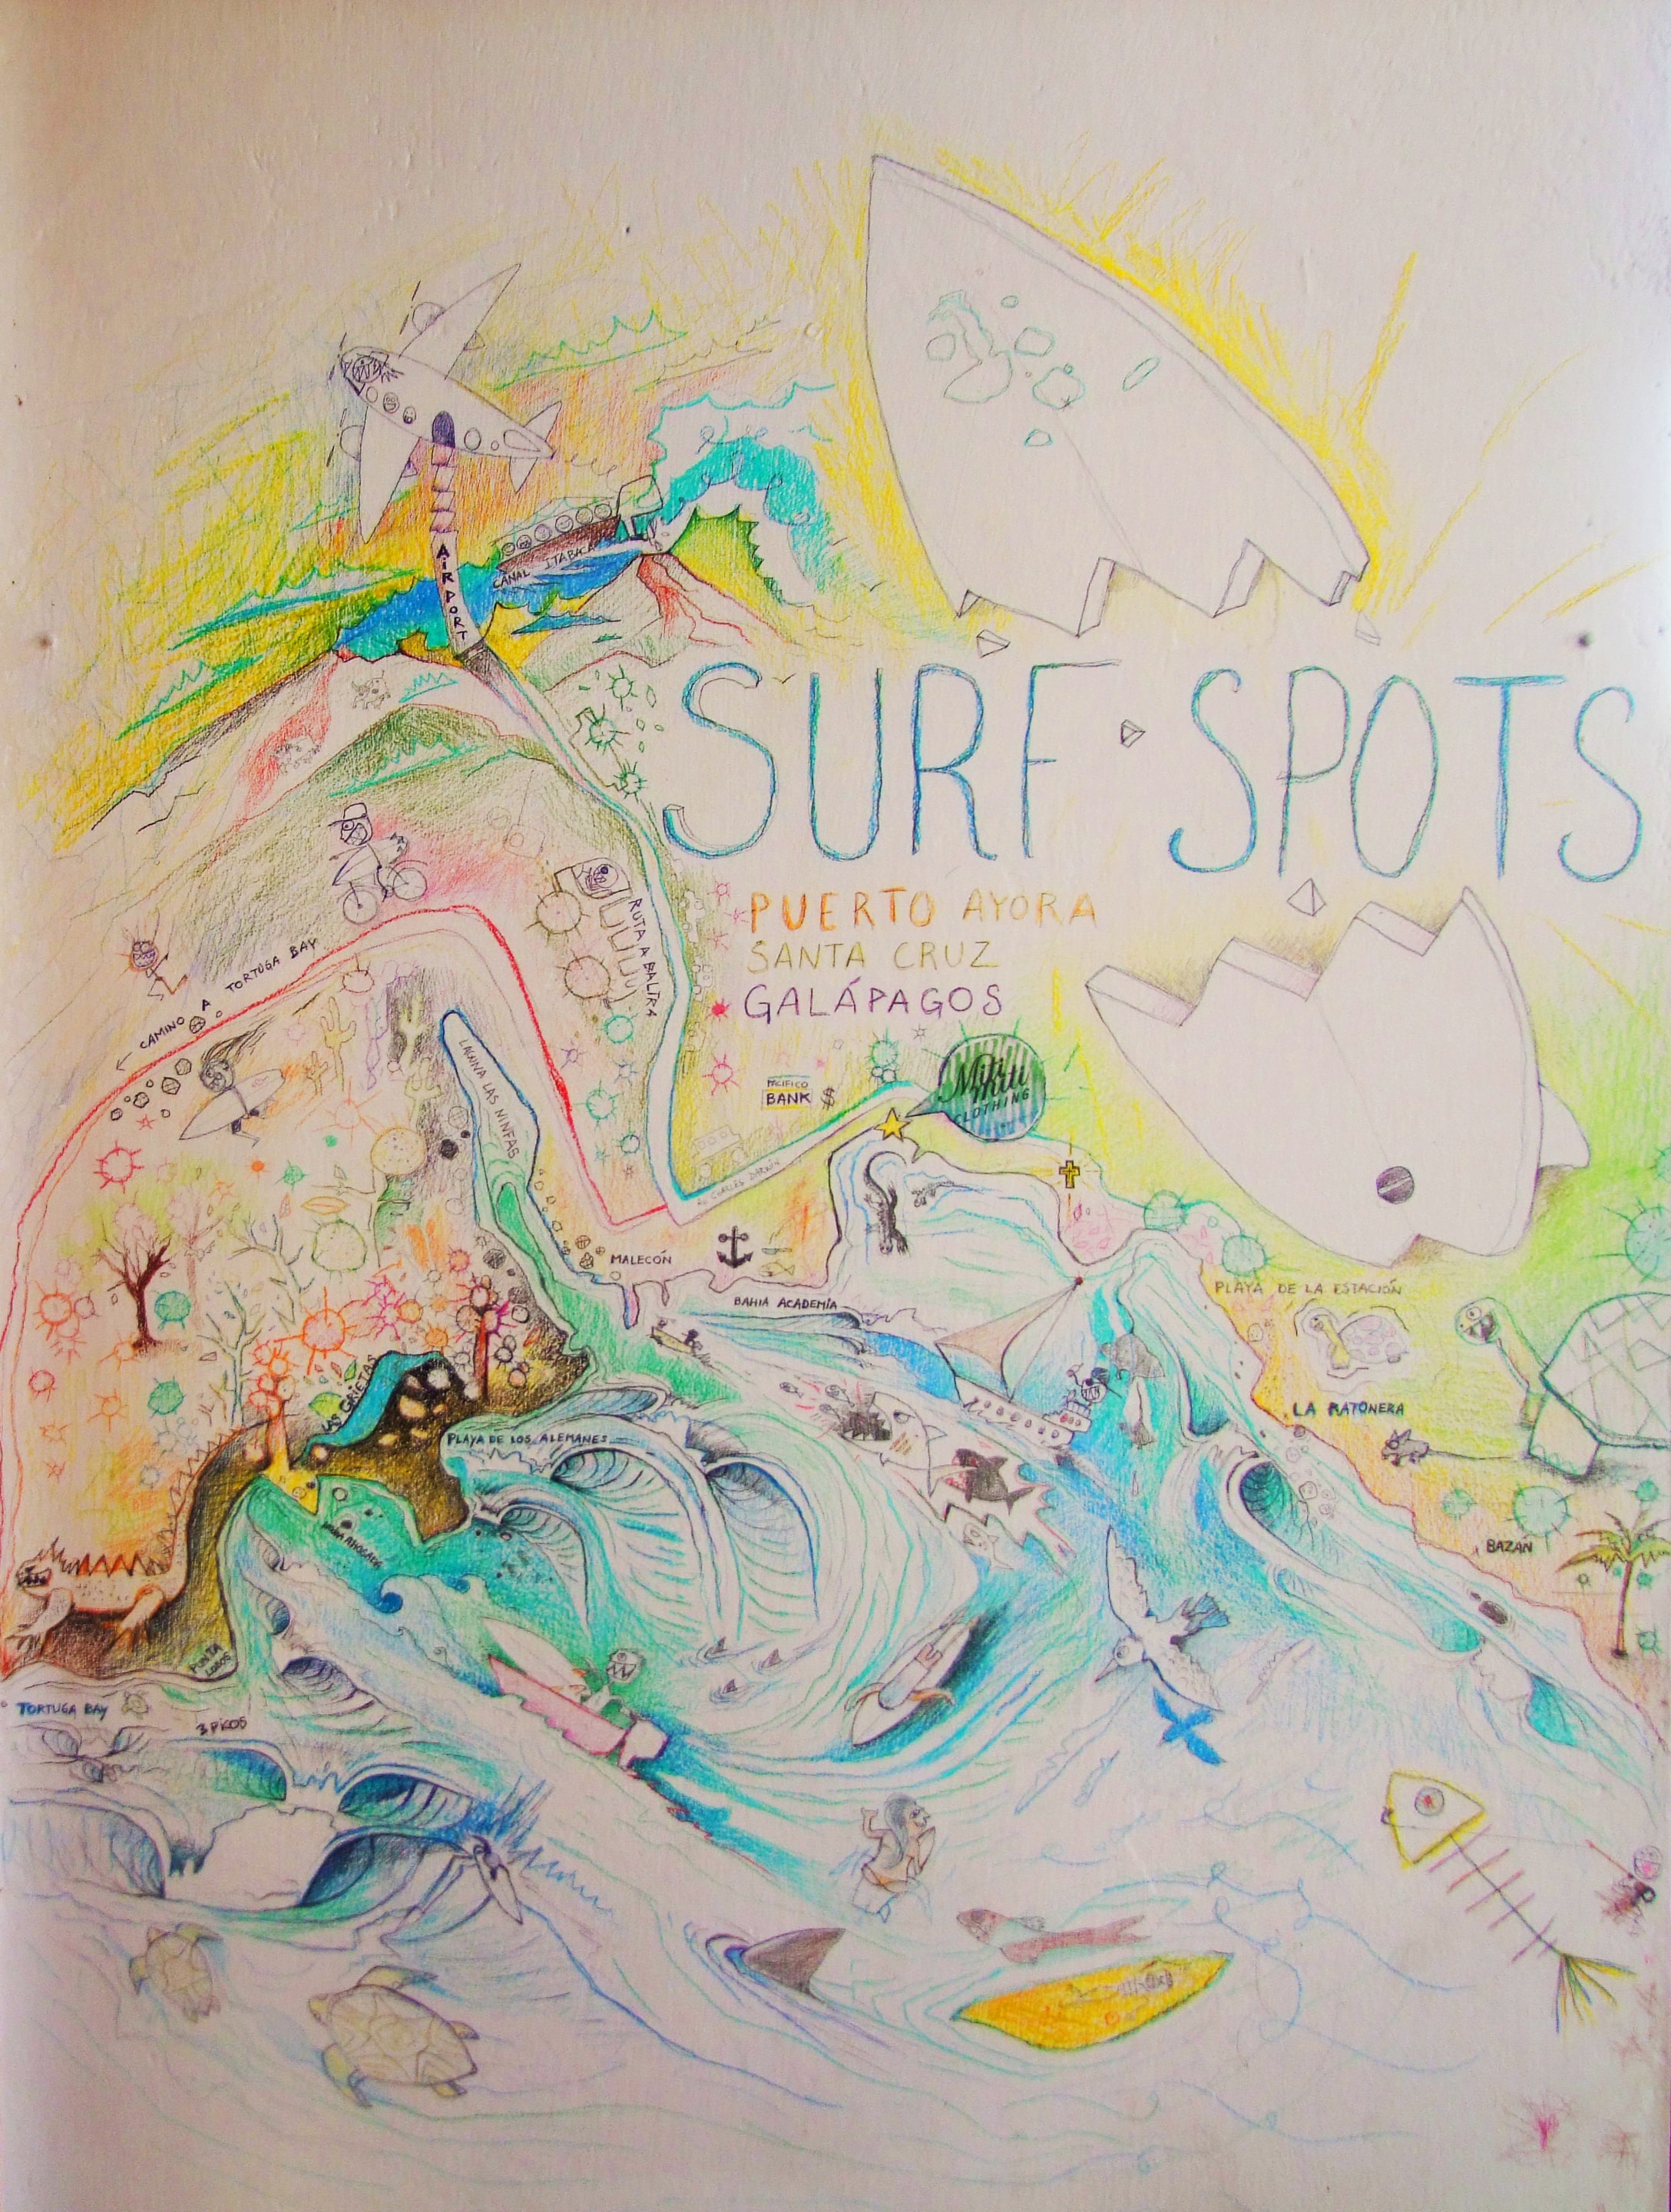 AIRPORT
CANAL ITABACA
SURF · SPOTS
PUERTO AYORA
SANTA CRUZ
GALÁPAGOS
RUTA A BALTRA
CAMINO A TORTUGA BAY
LAGUNA LAS NINFAS
PACIFICO
BANK $
Miti Kiti
CLOTHING
CHARLES DARWIN
MALECÓN
BAHIA ACADEMÍA
PLAYA DE LA ESTACIÓN
LA RATONERA
BAZÁN
LAS GRIETAS
PLAYA DE LOS ALEMANES
PUNTA
LOBOS
TORTUGA BAY
3 PICOS